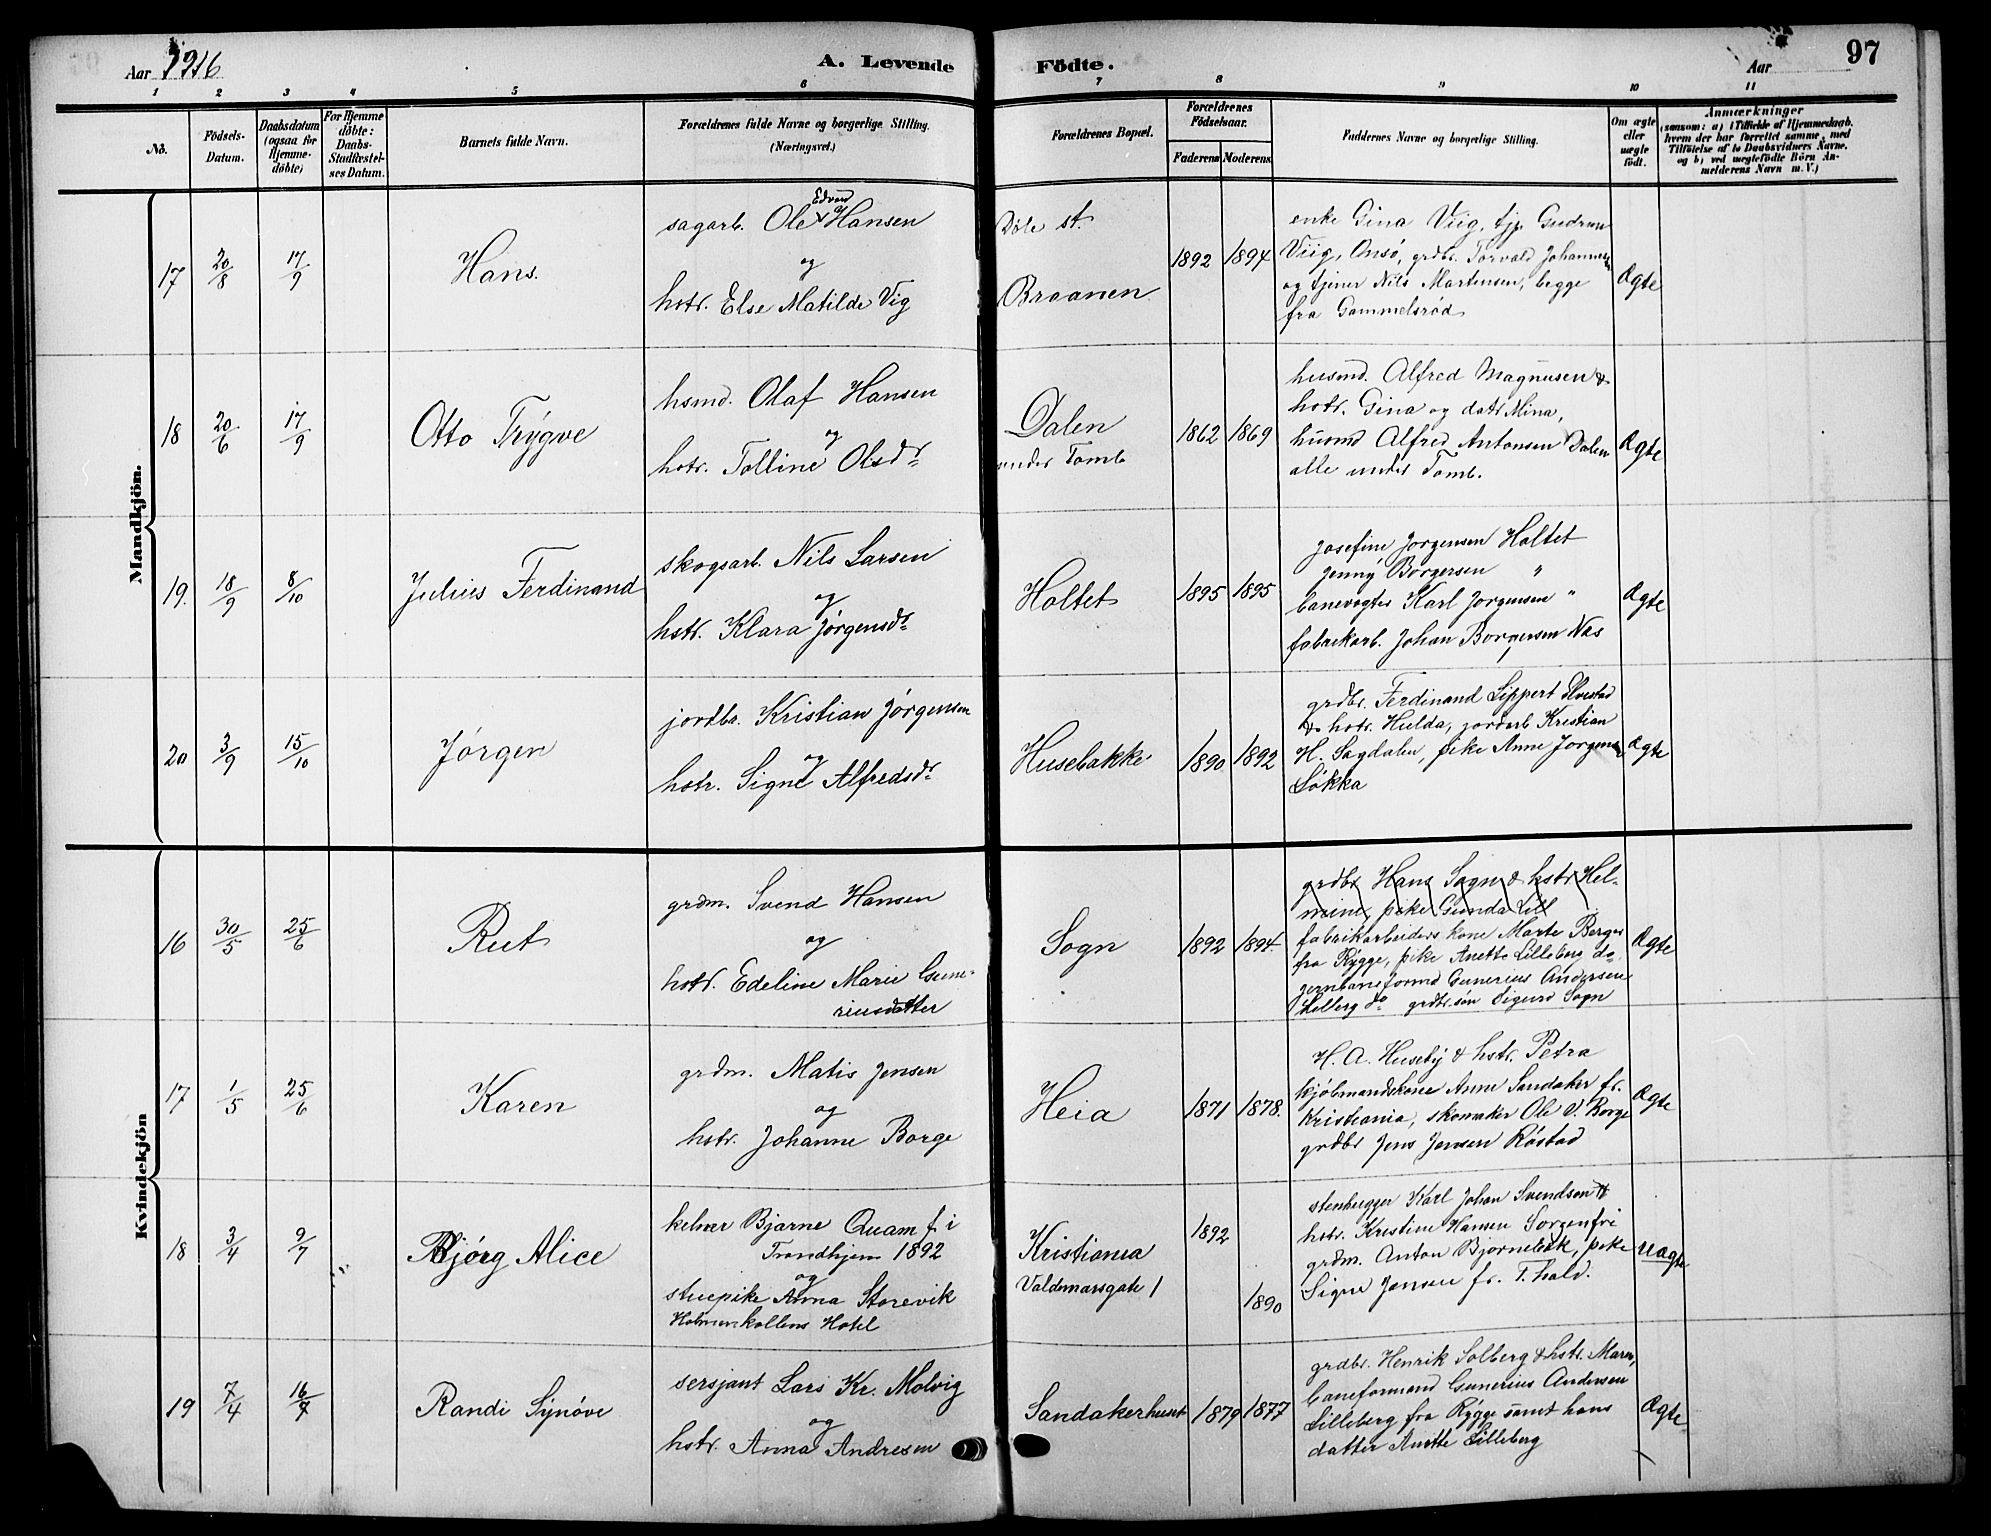 Aar 1916
A. Levende Födte.
Aar
97
1 2 3 4 5 6 7 8 9 10 11
No.
Födsels-
Datum.
Daabsdatum
(ogsaa for
Hjemme-
döbte)
For Hjemme
döbte:
Daabs-
Stadfæstel-
ses Datum.
Barnets fulde Navn.
Forældrenes fulde Navne og borgerlige Stilling.
(Næringsvei.)
Forældrenes Bopæl.
Forældrenes
Födselsaar.
Faderens Moderens
Faddernes Navne og borgerlige Stilling.
Om ægte
eller
uægte
födt.
Anmærkninger
(saasom: a) i Tilfælde af Hjemmedaab.
hvem der har forrettet samme, med
Tilföielse af to Daabsvidners Navne.
og b) ved uægtefödte Börn An-
melderens Navn m. V.)
Mandkjön.
17
20/8
17/9
Hans.
Edvard
sagarb. Ole Hansen
og
hstr. Else Matilde Vig
st.
Braanen
1892
1894
enke Gina Viig, tjp. Gudrun
Viig, Onsø, grdbr. Torvald Johannesen
og tjener Nils Martensen, begge
fra Gammelsrød
Ægte
18
20/6
17/9
Otto Trygve
hsmd. Olaf Hansen
og
hstr. Tolline Olsdr
Dalen
under Tomb
1862
1869
husmd. Alfred Magnusen &
hstr. Gina og datr Mina,
husmd Alfred Antonsen Dalen
alle under Tomb.
Ægte
19.
18/9
8/10
Julius Ferdinand
skogsarb. Nils Larsen
og
hstr. Klara Jørgensdr
Holtet
1895
1895
Josefine Jorgensen Holtet
Jenny Borgersen "
banevogter Karl Jorgensen "
fabrikarb. Johan Borgersen Næs
Ægte
20
3/9
15/10
Jørgen
jordbr. Kristian Jørgensen
og
hstr. Signe Alfredsdr
Husebakke
1890
1892
grdbr. Ferdinand Lippert Elvestad
& hstr. Hulda, jordarb Kristian
H. Sagdalen, pike Anne Jorgensen
Løkka
Ægte
Kvindekjön
16
30/5
25/6
Rut
grdm. Svend Hansen
og
hstr. Edeline Marie Gune-
riusdatter
Sogn
1892
1894.
grdbr Hans Sogn & hstr Hel-
mine, pike Gunda Lill
fabrikarbeiders kone Marte Berger
fra Rygge, pike Anette Lilleberg do-
jernbaneformd Gunerius Andersen
Lilleberg do grdbr.søn Sigurd Sogn
Ægte
17
1/5
25/6
Karen
grdm. Matis Jensen
og
hstr. Johanne Borge
Heia
1871
1878.
H. A. Huseby & hstr. Petra
kjøbmandskone Anne Sandaker fr.
Kristiania, skomaker Ole V. Borge
grdbr Jens Jensen Røstad
Ægte
18
3/4
9/7
Bjørg Alice
kelner Bjarne Quam f. i
Trondhjem 1892
og
stuepike Anna Storevik
Holmenkollens Hotel
Kristiania
Valdemarsgate 1
1892
1890
stenhugger Karl Johan Svendsen &
hstr. Kristine Hansen Sorgenfri
grdm. Anton Bjornebæk, pike
Signe Jensen fr. F. hald.
Uægte
19
7/4
16/7
Randi Synøve
sersjant Lars Kr. Molvig
og
hstr. Anna Andresen
Sandakerhuset
1879
1877
grdbr. Henrik Solberg & hstr. Maren,
baneformand Gunerius Andersen
Lilleberg fra Rygge samt hans
datter Anette Lilleberg
Ægte